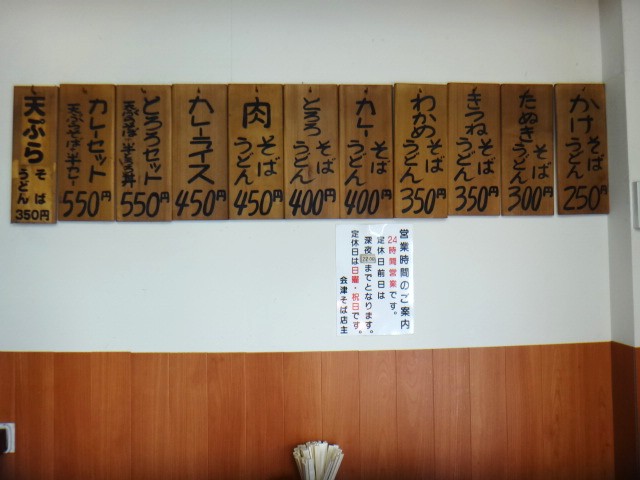 かけそばうどん 250円
たぬきそばうどん 300円
きつねそばうどん 350円
わかめそばうどん 350円
カレーそばうどん 400円
とろろそばうどん 400円
肉そばうどん 450円
カレーライス 450円
とろろセット
550円
カレーセット
550円
天ぷらそばうどん 350円
営業時間のご案内
24時間営業です。
定休日前日は
深夜 までとなります。
定休日は日曜・祝日です。
会津そば店主